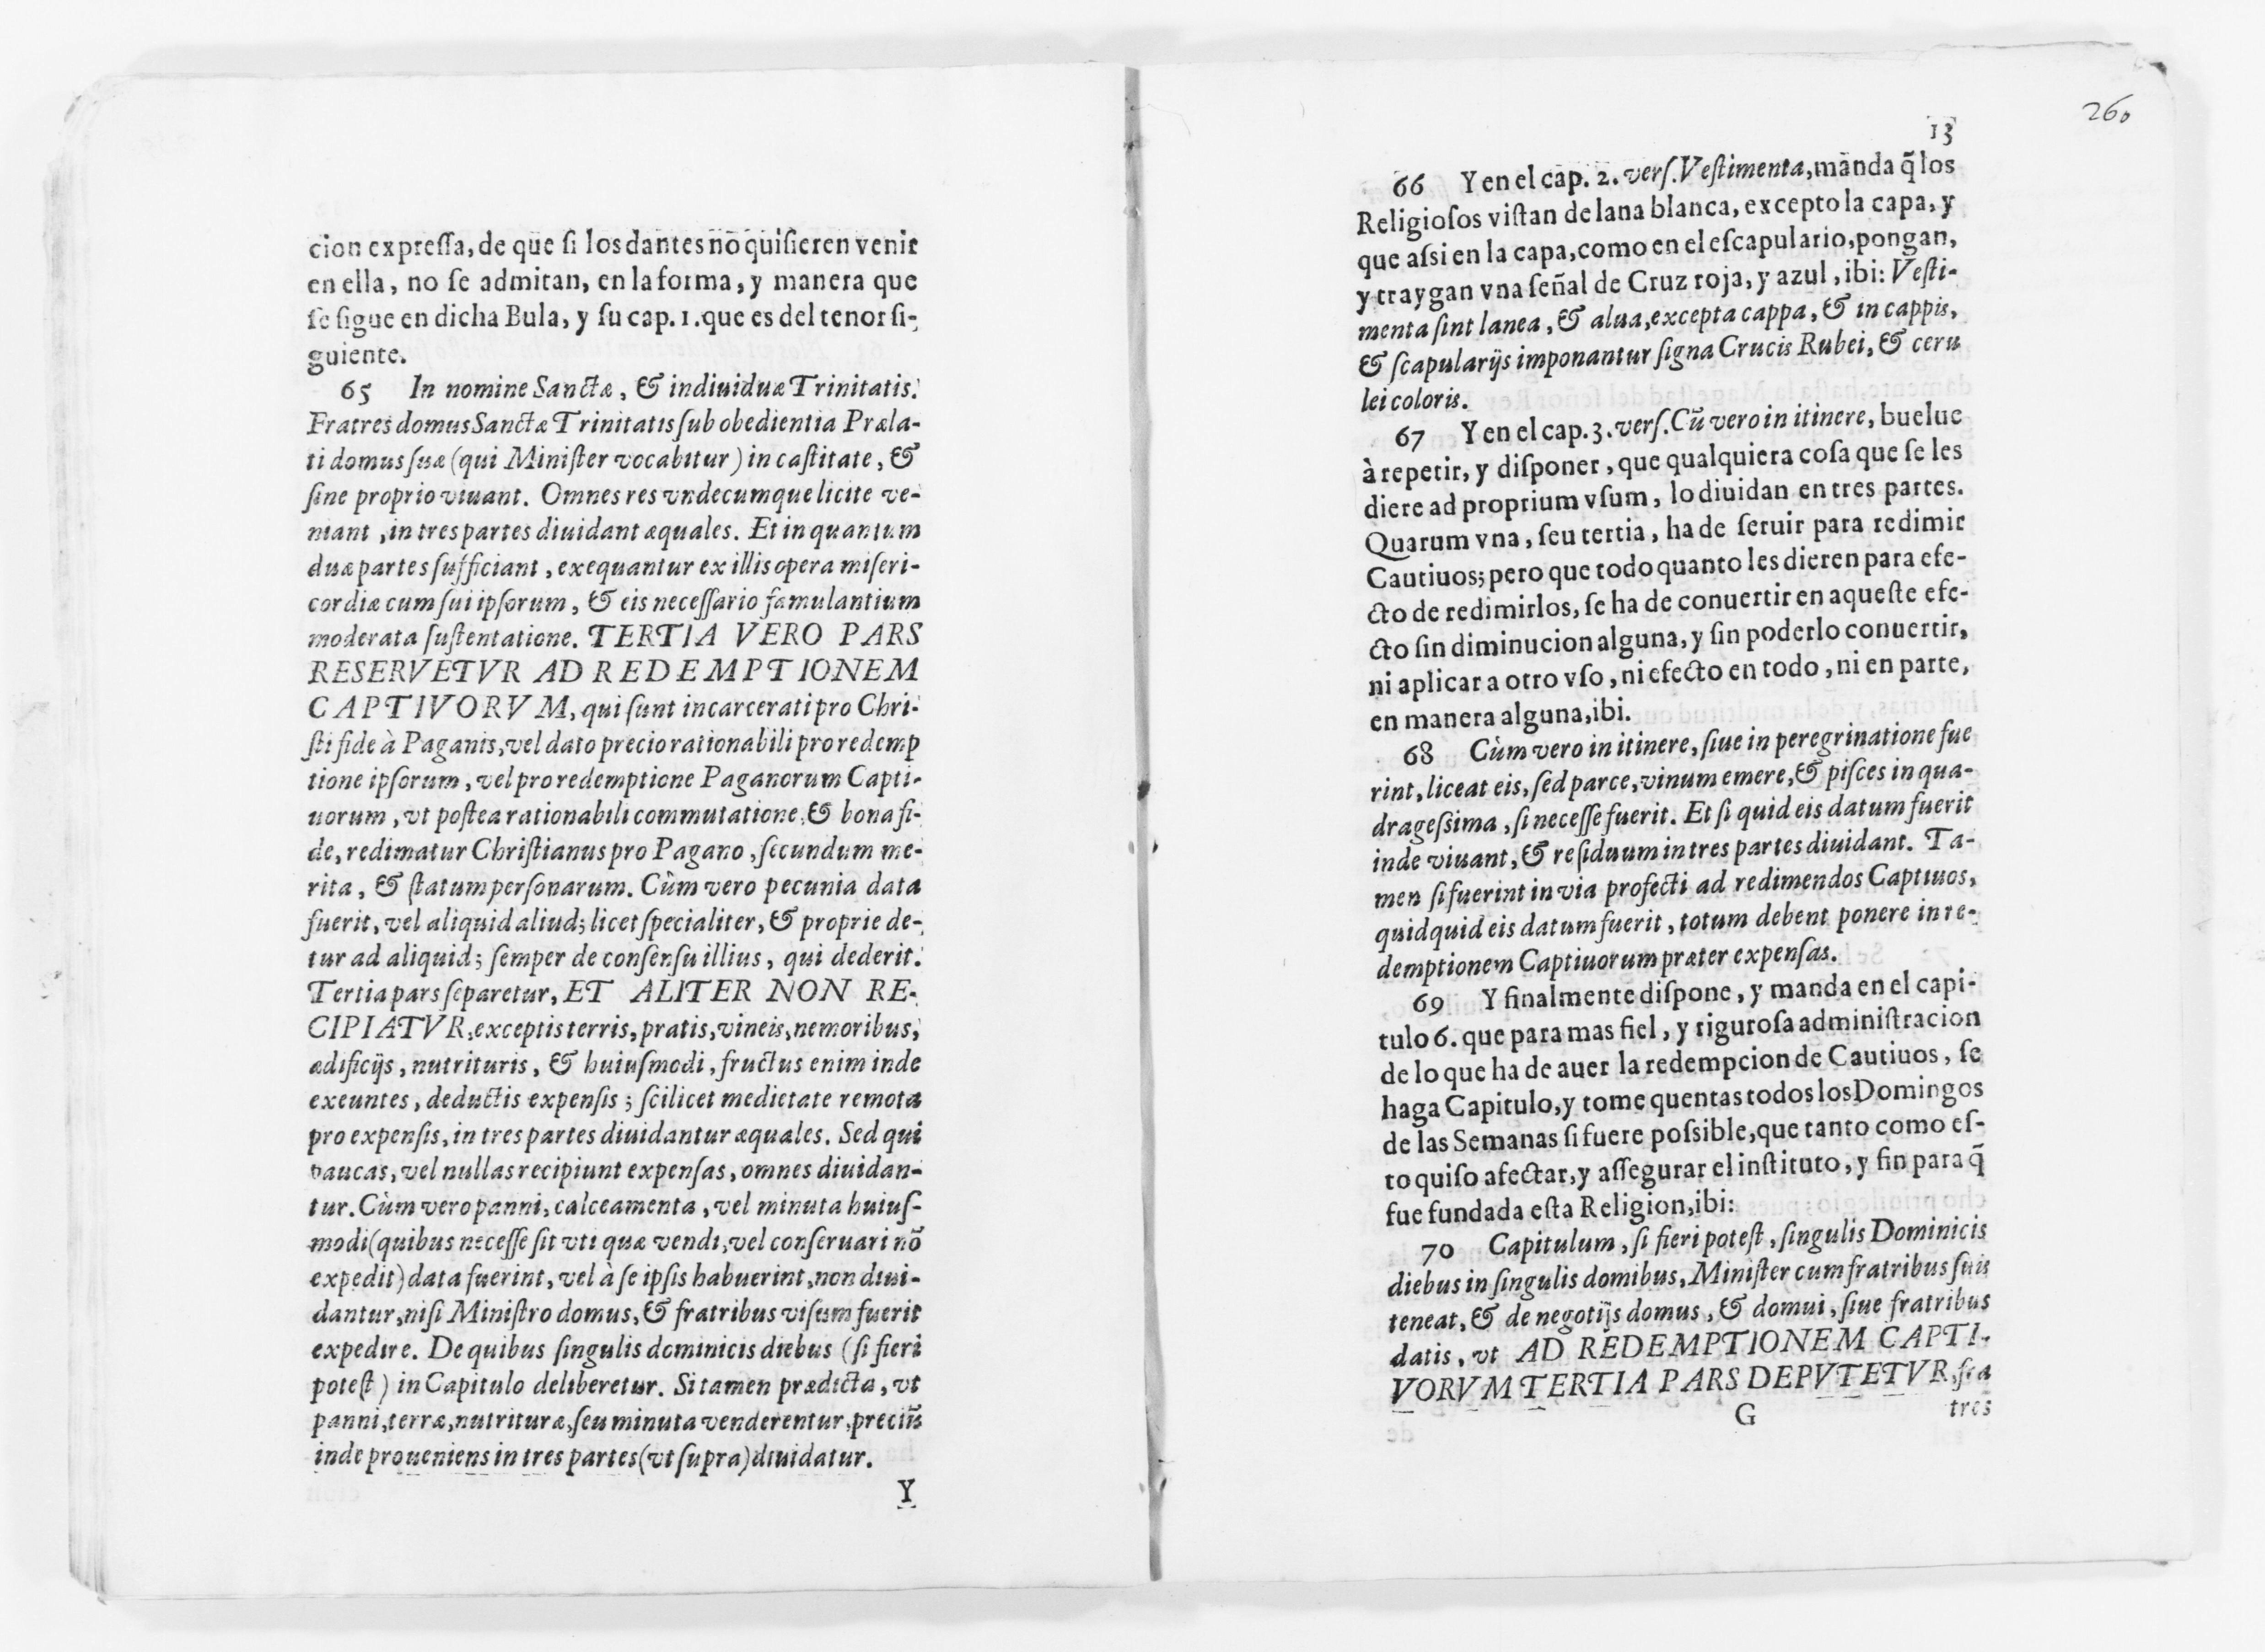 cion expreſſa, de que ſi los dantes no quiſieren venir
en ella, no ſe admitan, en la forma, y manera que
ſe ſigue en dicha Bula, y ſu cap. 1. que es del tenor ſi-
guiente.
65 In nomine Sanctæ, & indiuiduæ Trinitatis.
Fratres domus Sanctæ Trinitatis ſub obedientia Præla-
ti domus ſuæ (qui Miniſter vocabitur) in caſtitate, &
ſine proprio viuant. Omnes res vndecumque licite ve-
niant, in tres partes diuidant æquales. Et in quantum
duæ partes ſufficiant, exequantur ex illis opera miſeri-
cordiæ cum ſui ipſorum, & eis neceſſario famulantium
moderata ſuſtentatione. TERTIA VERO PARS
RESERVETVR AD REDEMPTIONEM
CAPTIVORVM, qui ſunt incarcerati pro Chri-
ſti fide à Paganis, vel dato precio rationabili pro redemp
tione ipſorum, vel pro redemptione Paganorum Capti-
uorum, vt poſtea rationabili commutatione, & bona fi-
de, redimatur Chriſtianus pro Pagano, ſecundum me-
rita, & ſtatum perſonarum. Cùm vero pecunia data
fuerit, vel aliquid aliud; licet ſpecialiter, & proprie de-
tur ad aliquid; ſemper de conſenſu illius, qui dederit.
Tertia pars ſeparetur, ET ALITER NON RE-
CIPIATVR, exceptis terris, pratis, vineis, nemoribus,
ædificijs, nutrituris, & huiuſmodi, fructus enim inde
exeuntes, deductis expenſis; ſcilicet medietate remota
pro expenſis, in tres partes diuidantur æquales. Sed qui
paucas, vel nullas recipiunt expenſas, omnes diuidan-
tur. Cùm vero panni, calceamenta, vel minuta huiuſ-
modi (quibus neceſſe ſit vti quæ vendi, vel conſeruari nõ
expedit) data fuerint, vel à ſe ipſis habuerint, non diui-
dantur, niſi Miniſtro domus, & fratribus viſum fuerit
expedire. De quibus ſingulis dominicis diebus (ſi fieri
poteſt) in Capitulo deliberetur. Si tamen prædicta, vt
panni, terræ, nutrituræ, ſeu minuta venderentur, preciũ
inde proueniens in tres partes (vt ſupra) diuidatur.
Y
260
13
66 Y en el cap. 2. verſ. Veſtimenta, manda q̃ los
Religioſos viſtan de lana blanca, excepto la capa, y
que aſsi en la capa, como en el eſcapulario, pongan,
y traygan vna ſeñal de Cruz roja, y azul, ibi: Veſti-
menta ſint lanea, & alua, excepta cappa, & in cappis,
& ſcapularijs imponantur ſigna Crucis Rubei, & ceru
lei coloris.
67 Y en el cap. 3. verſ. Cũ vero in itinere, buelue
à repetir, y diſponer, que qualquiera coſa que ſe les
diere ad proprium vſum, lo diuidan en tres partes.
Quarum vna, ſeu tertia, ha de ſeruir para redimir
Cautiuos; pero que todo quanto les dieren para efe-
cto de redimirlos, ſe ha de conuertir en aqueſte efe-
cto ſin diminucion alguna, y ſin poderlo conuertir,
ni aplicar a otro vſo, ni efecto en todo, ni en parte,
en manera alguna, ibi.
68 Cùm vero in itinere, ſiue in peregrinatione fue
rint, liceat eis, ſed parce, vinum emere, & piſces in qua-
drageſsima, ſi neceſſe fuerit. Et ſi quid eis datum fuerit
inde viuant, & reſiduum in tres partes diuidant. Ta-
men ſi fuerint in via profecti ad redimendos Captiuos,
quidquid eis datum fuerit, totum debent ponere in re-
demptionem Captiuorum præter expenſas.
69 Y finalmente diſpone, y manda en el capi-
tulo 6. que para mas fiel, y riguroſa adminiſtracion
de lo que ha de auer la redempcion de Cautiuos, ſe
haga Capitulo, y tome quentas todos los Domingos
de las Semanas ſi fuere poſsible, que tanto como eſ-
to quiſo afectar, y aſſegurar el inſtituto, y fin para q̃
fue fundada eſta Religion, ibi:
70 Capitulum, ſi fieri poteſt, ſingulis Dominicis
diebus in ſingulis domibus, Miniſter cum fratribus ſuis
teneat, & de negotijs domus, & domui, ſiue fratribus
datis, vt AD REDEMPTIONEM CAPTI-
VORVM TERTIA PARS DEPVTETVR, fra
G tres